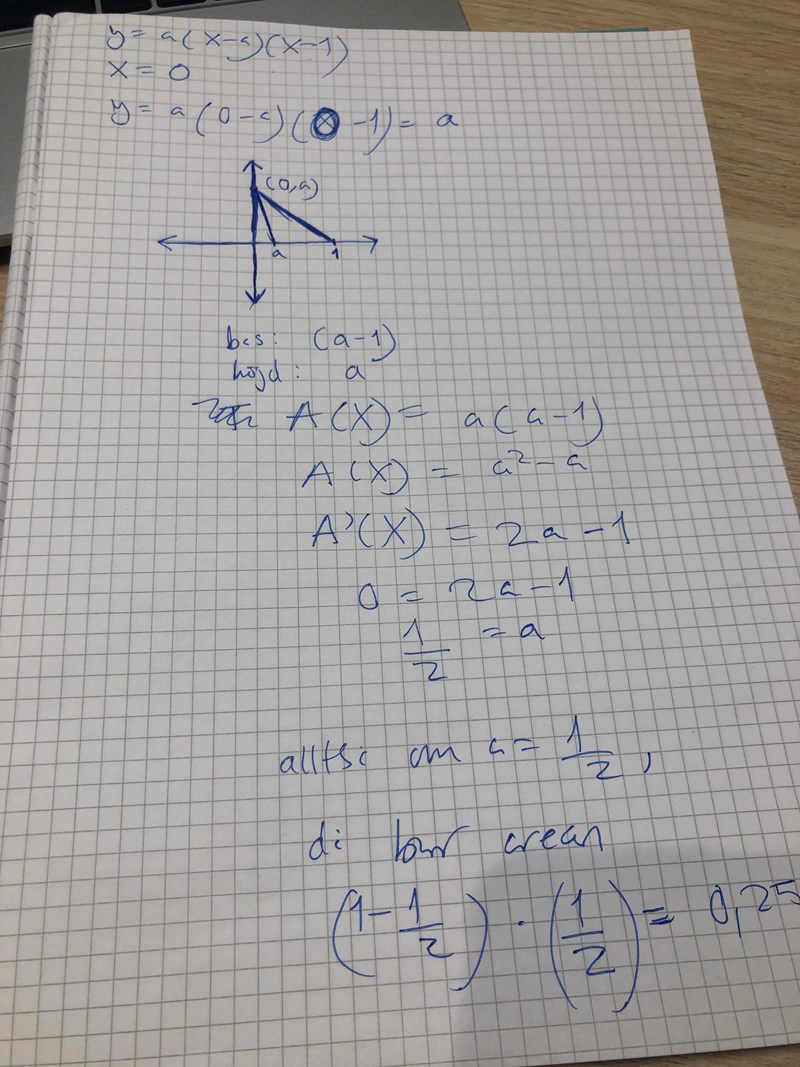 y = a(x-a)(x-1)
x = 0
y = a(0-a)(0-1) = a
(0,a)
a 1
bas: (a-1)
höjd: a
A(X) = a(a-1)
A(X) = a² - a
A'(X) = 2a - 1
0 = 2a - 1
1/2 = a
alltså om a = 1/2,
då blir arean
(1 - 1/2) · (1/2) = 0,25